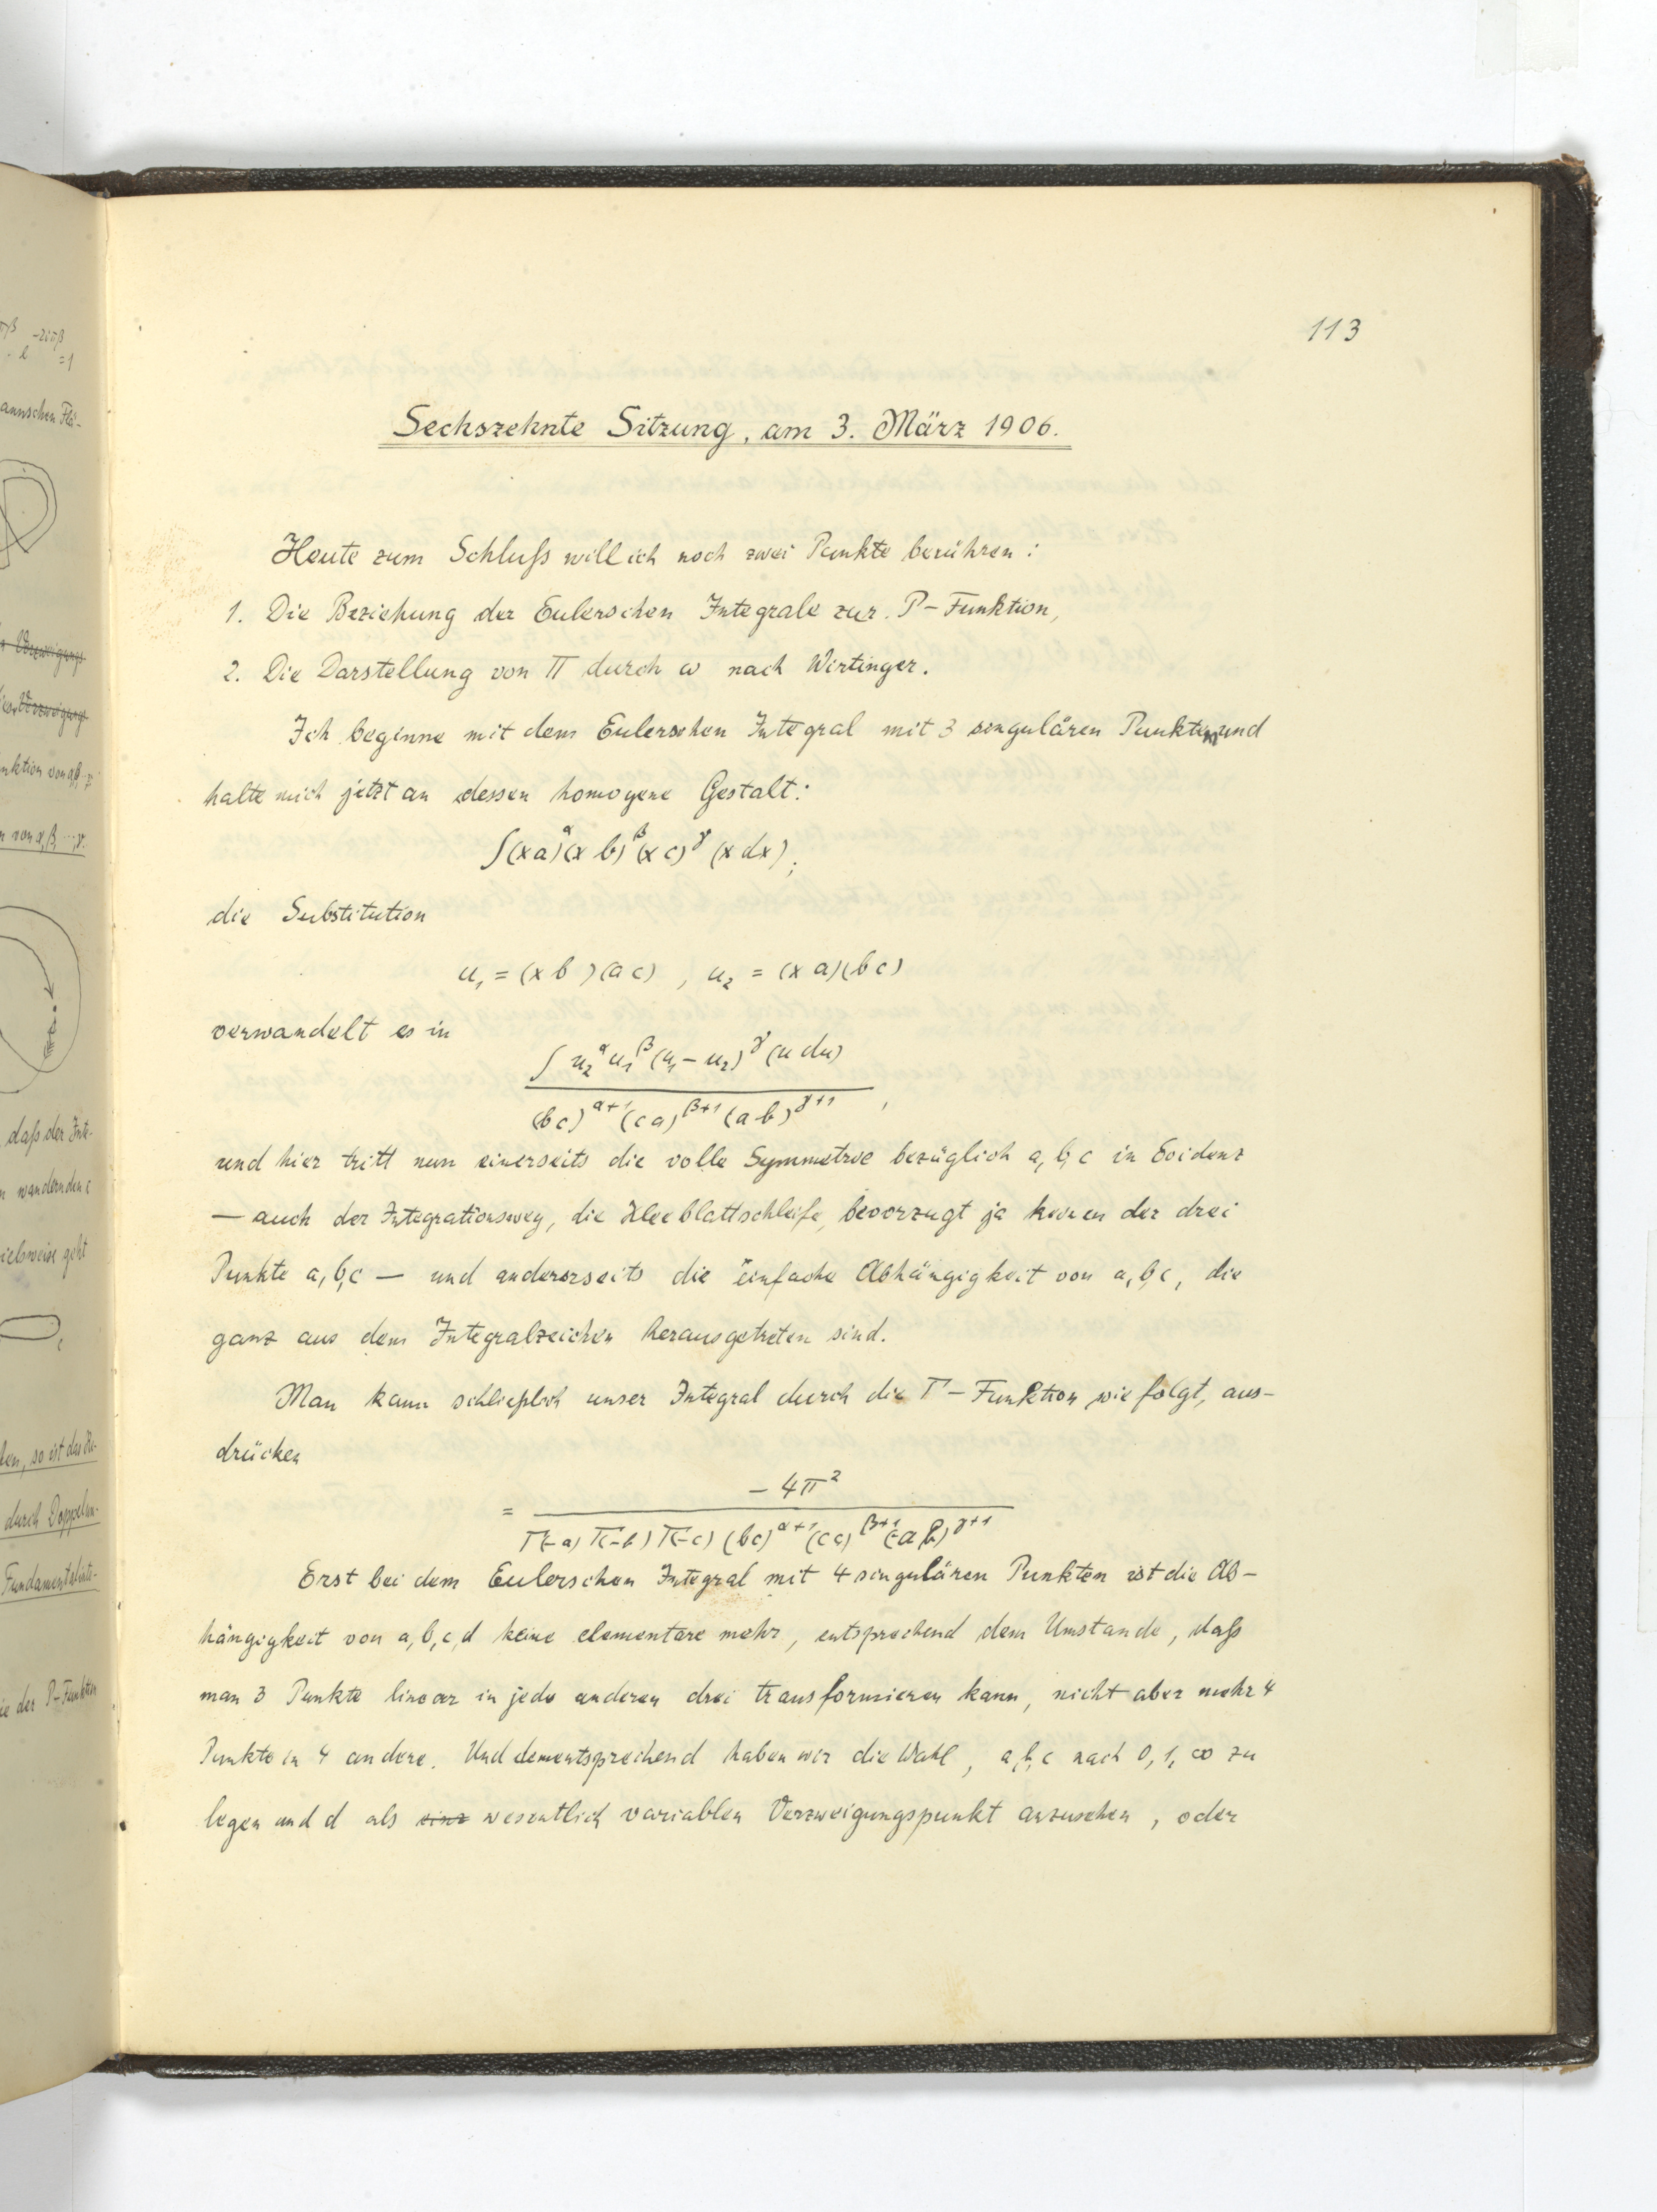 113
Sechszehnte Sitzung, am 3. März 1906.
Heute zum Schluß will ich noch zwei Punkte berühren:
1. Die Beziehung der Eulerschen Integrale zur P-Funktion,
2. Die Darstellung von Π durch ω nach Wirtinger.
Ich beginne mit dem Eulerschen Integral mit 3 singulären Punkten und
halte mich jetzt an dessen homogene Gestalt:
∫(xa)^α(xb)^β(xc)^γ (xdx);
die Substitution
u₁ = (xb)(ac) , u₂ = (xa)(bc)
verwandelt es in
∫ u₂^α u₁^β (u₁ - u₂)^γ (u du)
(bc)^α+1 (ca)^β+1 (ab)^γ+1 ,
und hier tritt nun einerseits die volle Symmetrie bezüglich a, b, c in Evidenz
— auch der Integrationsweg, die Kleeblattschleife, bevorzugt ja keinen der drei
Punkte a, b, c — und andererseits die einfache Abhängigkeit von a, b, c, die
ganz aus dem Integralzeichen herausgetreten sind.
Man kann schließlich unser Integral durch die Γ-Funktion wie folgt, aus-
drücken
= -4π²
Γ(-a) Γ(-b) Γ(-c) (bc)^α+1 (ca)^β+1 (ab)^γ+1
Erst bei dem Eulerschen Integral mit 4 singulären Punkten ist die Ab-
hängigkeit von a, b, c, d keine elementare mehr, entsprechend dem Umstande, daß
man 3 Punkte linear in jede anderen drei transformieren kann, nicht aber mehr 4
Punkte in 4 andere. Und dementsprechend haben wir die Wahl, a, b, c nach 0, 1, ∞ zu
legen und d als wesentlich variablen Verzweigungspunkt anzusehen, oder